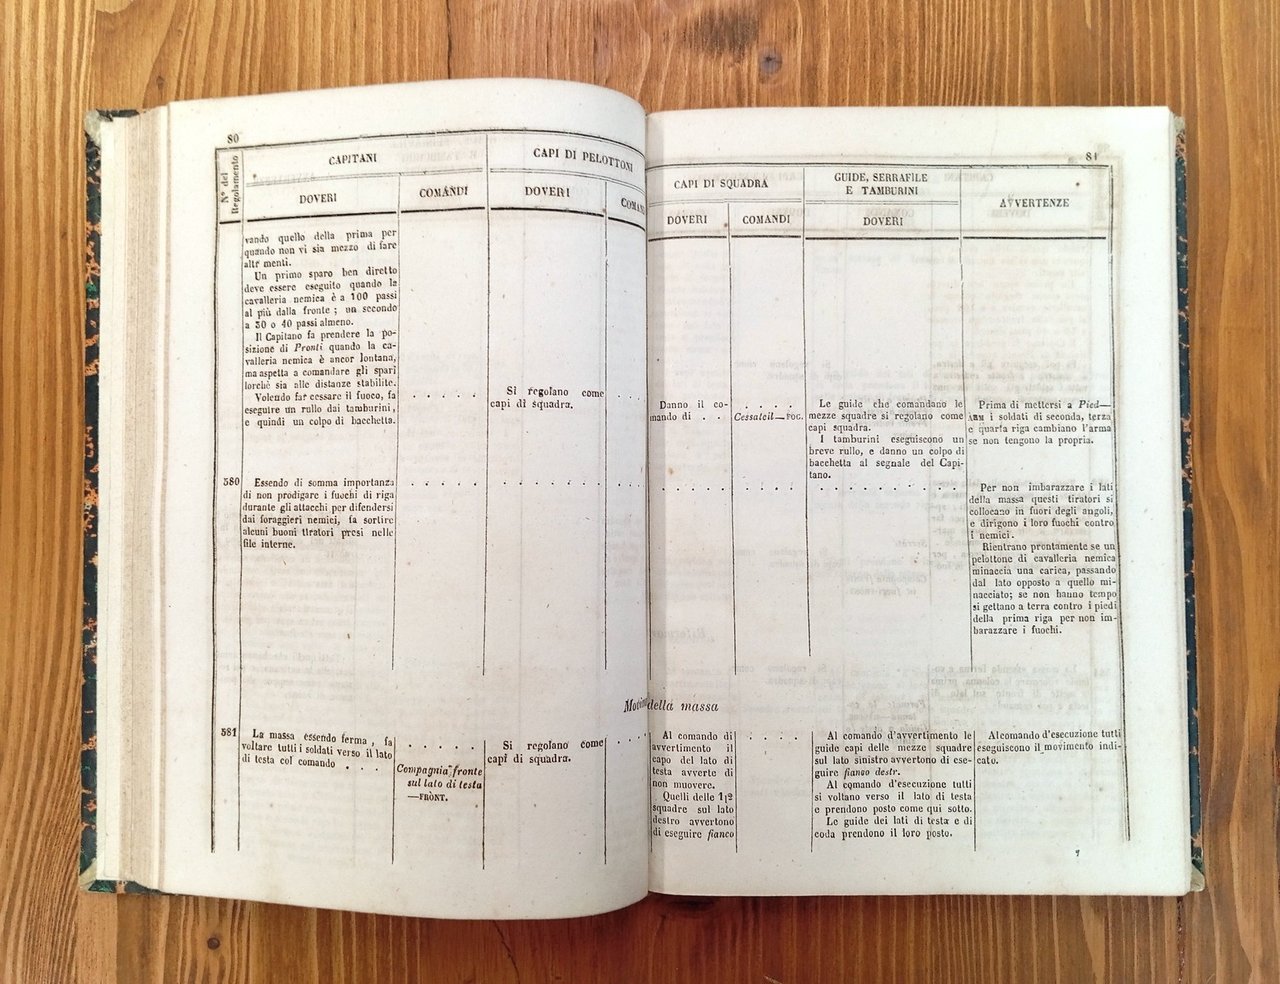 80
N° del Regolamento
CAPITANI
CAPI DI PELOTTONI
DOVERI
COMANDI
DOVERI
vando quello della prima per
quando non vi sia mezzo di fare
altr menti.
Un primo sparo ben diretto
deve essere eseguito quando la
cavalleria nemica è a 100 passi
al più dalla fronte ; un secondo
a 30 o 40 passi almeno.
Il Capitano fa prendere la po-
sizione di Pronti quando la ca-
valleria nemica è ancor lontana,
ma aspetta a comandare gli spari
lorchè sia alle distanze stabilite.
Volendo far cessare il fuoco, fa
eseguire un rullo dai tamburini,
e quindi un colpo di bacchetta.
. . . . . .
Si regolano come
capi di squadra.
. . . .
580
Essendo di somma importanza
di non prodigare i fuochi di riga
durante gli attacchi per difendersi
dai foraggieri nemici, fa sortire
alcuni buoni tiratori presi nelle
file interne.
. . . . . .
. . . . . . . .
. . . .
della massa
581
La massa essendo ferma , fa
voltare tutti i soldati verso il lato
di testa col comando . . .
. . . . .
Compagnia fronte
sul lato di testa
—FRONT.
Si regolano come
capi di squadra.
. . . .
81
CAPI DI SQUADRA
GUIDE, SERRAFILE
E TAMBURINI
AVVERTENZE
DOVERI
COMANDI
DOVERI
Danno il co-
mando di . .
. . . . .
Cessateil—FOC.
Le guide che comandano le
mezze squadre si regolano come
capi squadra.
I tamburini eseguiscono un
breve rullo, e danno un colpo di
bacchetta al segnale del Capi-
tano.
Prima di mettersi a Pied—
ARM i soldati di seconda, terza
e quarta riga cambiano l'arma
se non tengono la propria.
. . . . . .
. . . . .
. . . . . . . . . .
Per non imbarazzare i lati
della massa questi tiratori si
collocano in fuori degli angoli,
e dirigono i loro fuochi contro
i nemici.
Rientrano prontamente se un
pelottone di cavalleria nemica
minaccia una carica, passando
dal lato opposto a quello mi-
nacciato; se non hanno tempo
si gettano a terra contro i piedi
della prima riga per non im-
barazzare i fuochi.
Al comando di
avvertimento il
capo del lato di
testa avverte di
non muovere.
Quelli delle 1|2
squadre sul lato
destro avvertono
di eseguire fianco
. . . .
Al comando d'avvertimento le
guide capi delle mezze squadre
sul lato sinistro avvertono di ese-
guire fianco destr.
Al comando d'esecuzione tutti
si voltano verso il lato di testa
e prendono posto come qui sotto.
Le guide dei lati di testa e di
coda prendono il loro posto.
Al comando d'esecuzione tutti
eseguiscono il movimento indi-
cato.
7